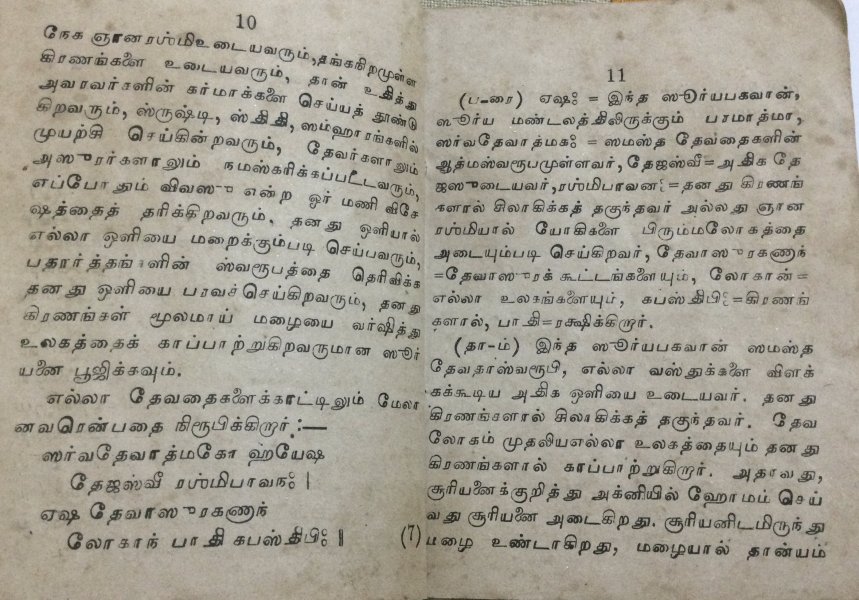 10
நேக ஞானரஶ்மிஉடையவரும்,தங்கநிறமுள்ள
கிரணங்களை உடையவரும், தான் உதித்து
அவரவர்களின் கர்மாக்களை செய்யத் தூண்டு
கிறவரும், ஸ்ருஷ்டி, ஸ்திதி, ஸம்ஹாரங்களில்
முயற்கி செய்கின்றவரும், தேவர்களாலும்
அஸுரர்களாலும் நமஸ்கரிக்கப்பட்டவரும்,
எப்போதும் விவஸு என்ற ஓர் மணி விசே
ஷத்தைத் தரிக்கிறவரும். தனது ஒளியால்
எல்லா ஒளியை மறைக்கும்படி செய்பவரும்,
பதார்த்தங்களின் ஸ்வரூபத்தை தெரிவிக்க
தனது ஒளியை பரவச்செய்கிறவரும், தனது
கிரணங்கள் மூலமாய் மழையை வர்ஷித்து
உலகத்தைக் காப்பாற்றுகிறவருமான ஸூர்
யனை பூஜிக்கவும்.
எல்லா தேவதைகளைக்காட்டிலும் மேலா
னவரென்பதை நிரூபிக்கிறார்:—
ஸர்வதேவாத்மகோ ஹ்யேஷ
தேஜஸ்வீ ரஶ்மிபாவநஃ |
ஏஷ தேவாஸுரகணாந்
லோகாந் பாதி கபஸ்திபிஃ || (7)
11
(ப-ரை) ஏஷஃ = இந்த ஸூர்யபகவான்,
ஸூர்ய மண்டலத்திலிருக்கும் பரமாத்மா,
ஸர்வதேவாத்மகஃ = ஸமஸ்த தேவதைகளின்
ஆத்மஸ்வரூபமுள்ளவர், தேஜஸ்வீ=அதிக தே
ஜஸுடையவர்,ரஶ்மிபாவனஃ=தனது கிரணங்
களால் சிலாகிக்கத் தகுந்தவர் அல்லது ஞான
ரஶ்மியால் யோகிகளை பிரும்மலோகத்தை
அடையும்படி செய்கிறவர், தேவாஸுரகணாந்
=தேவாஸுரக் கூட்டங்களையும், லோகான்=
எல்லா உலகங்களையும், கபஸ்திபிஃ=கிரணங்
களால், பாதி=ரக்ஷிக்கிறார்.
(தா-ம்) இந்த ஸூர்யபகவான் ஸமஸ்த
தேவதாஸ்வரூபி, எல்லா வஸ்துக்களை விளக்
கக்கூடிய அதிக ஒளியை உடையவர். தனது
கிரணங்களால் சிலாகிக்கத் தகுந்தவர். தேவ
லோகம் முதலியஎல்லா உலகத்தையும் தனது
கிரணங்களால் காப்பாற்றுகிறார். அதாவது,
சூரியனைக்குறித்து அக்னியில் ஹோமம் செய்
வது சூரியனை அடைகிறது. சூரியனிடமிருந்து
மழை உண்டாகிறது, மழையால் தான்யம்